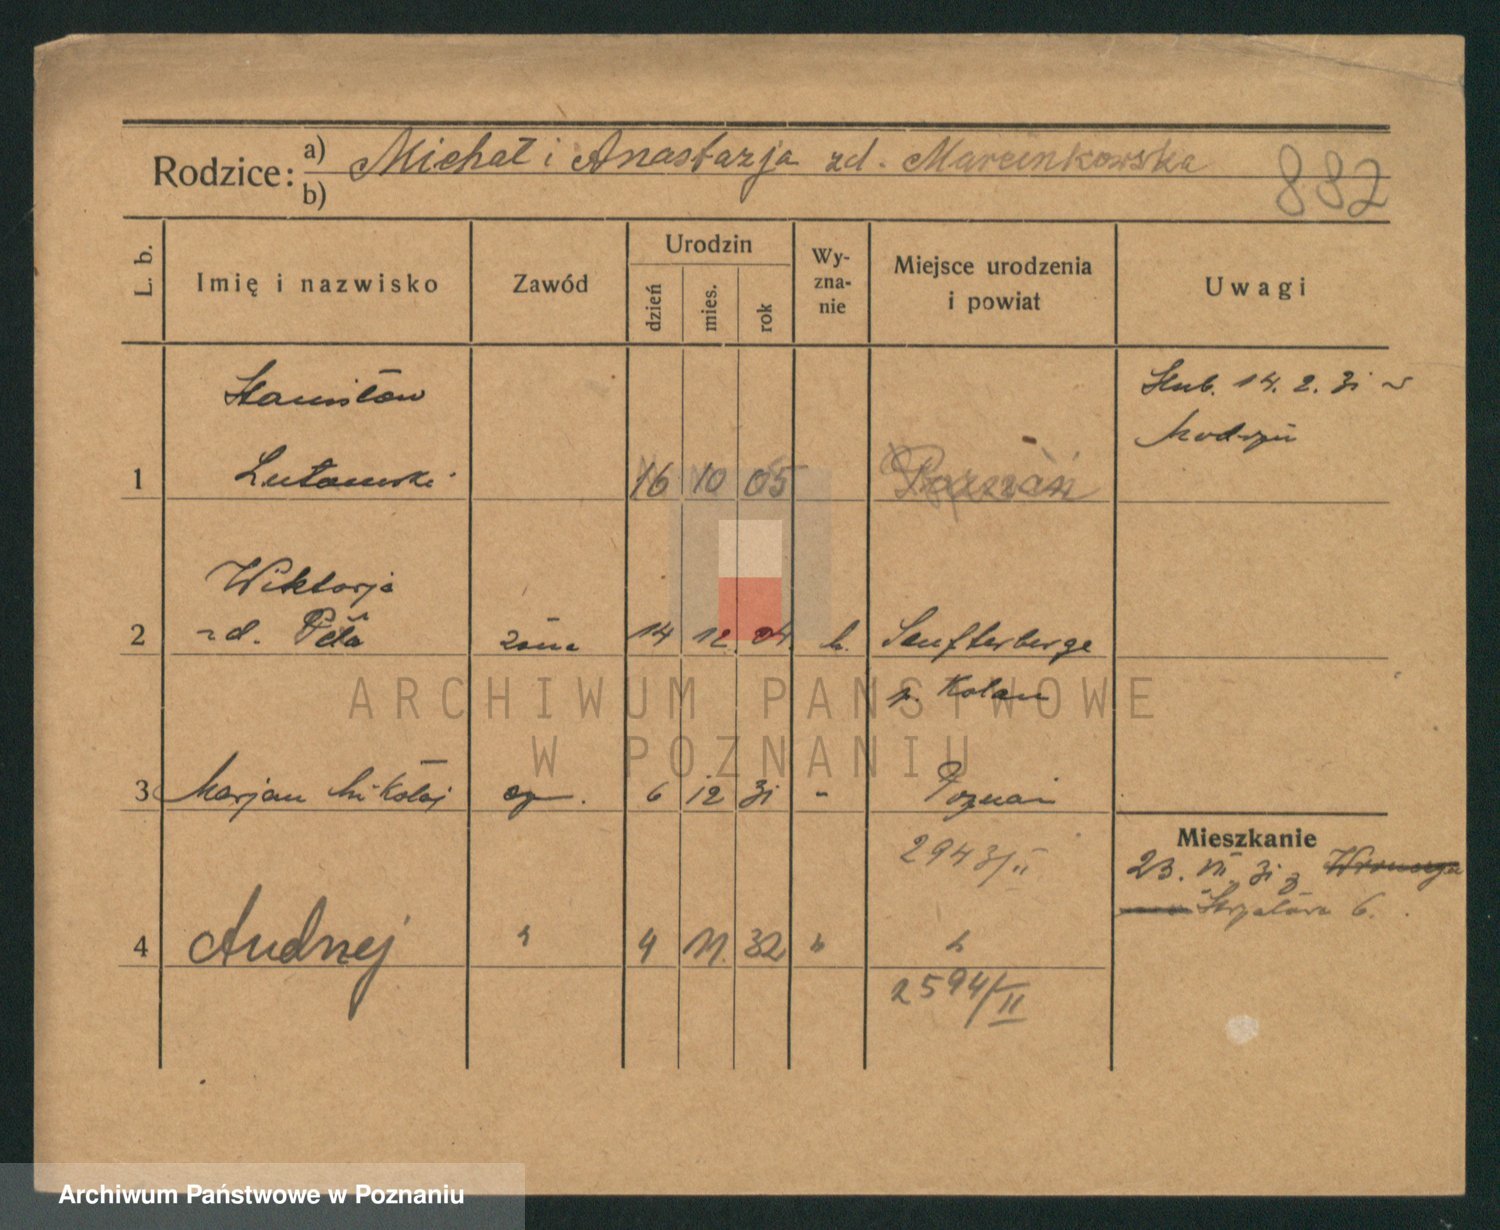 Rodzice: a) Michał i Anastazja zd. Marcinkowska
b)
882
L. b.
Imię i nazwisko
Zawód
Urodzin
dzień
mies.
rok
Wy-
zna-
nie
Miejsce urodzenia
i powiat
Uwagi
Stanisław
Ślub. 14. 2. 31 w
1 Lutomski 16 10 05 Poznań
Wiktorja
2 zd. Pela żona 14 12. 04. k.
p.
3 Marjan Mikołaj 6 12 31 " Poznań
2943/II
Mieszkanie
23. VI 31 z
6.
4 Andrzej " 4 11. 32 " "
2594/II
ARCHIWUM PAŃSTWOWE
W POZNANIU
Archiwum Państwowe w Poznaniu